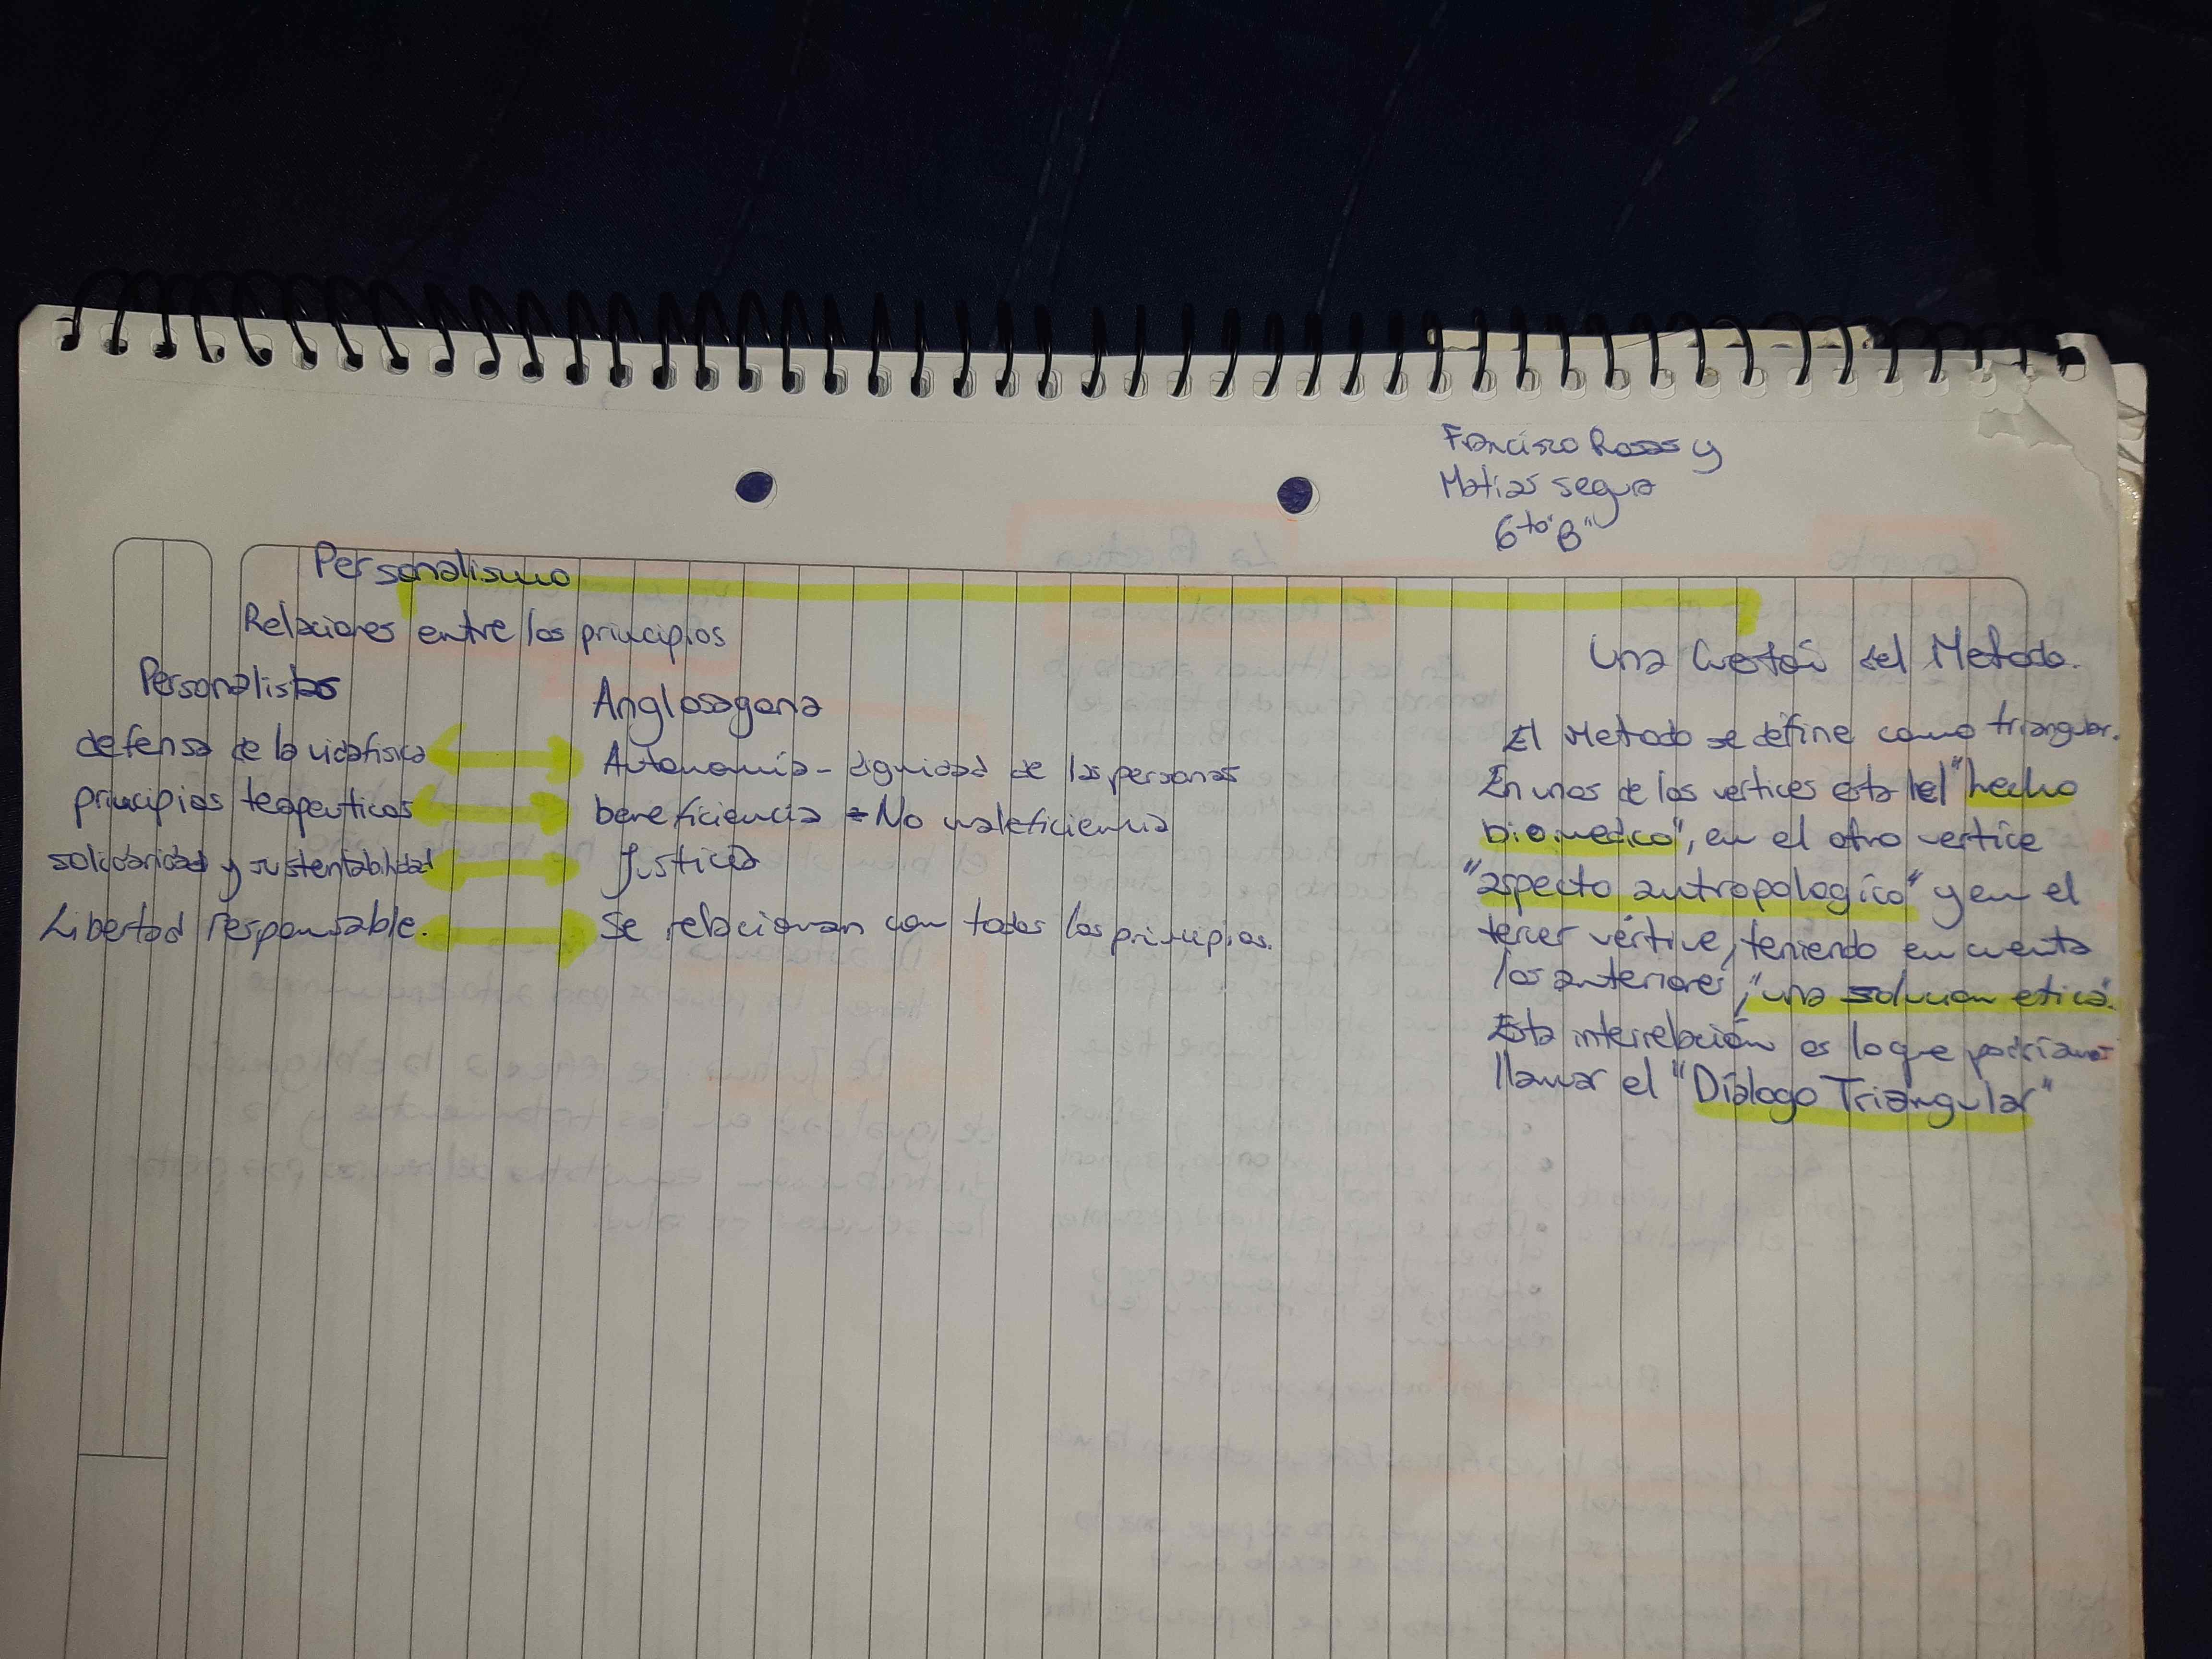 Francisco Rosas y
Matias segura
6to "B"
Personalismo
Relaciones entre los principios
Personalistas
Anglosagona
defensa de la vida fisica
Autonomía - dignidad de las personas
principios terapeuticos
beneficiencia = No maleficiencia
solidaridad y sustentabilidad
Justicia
Libertad responsable.
Se relacionan con todos los principios.
Una Cuestón del Metodo.
El Metodo se define como triangular.
En unos de los vertices esta el "hecho
biomedico", en el otro vertice
"aspecto antropologico" y en el
tercer vértive, teniendo en cuenta
los anteriores, "una solucion etica".
Esta interrelación es lo que podríamos
llamar el "Díalogo Triangular"